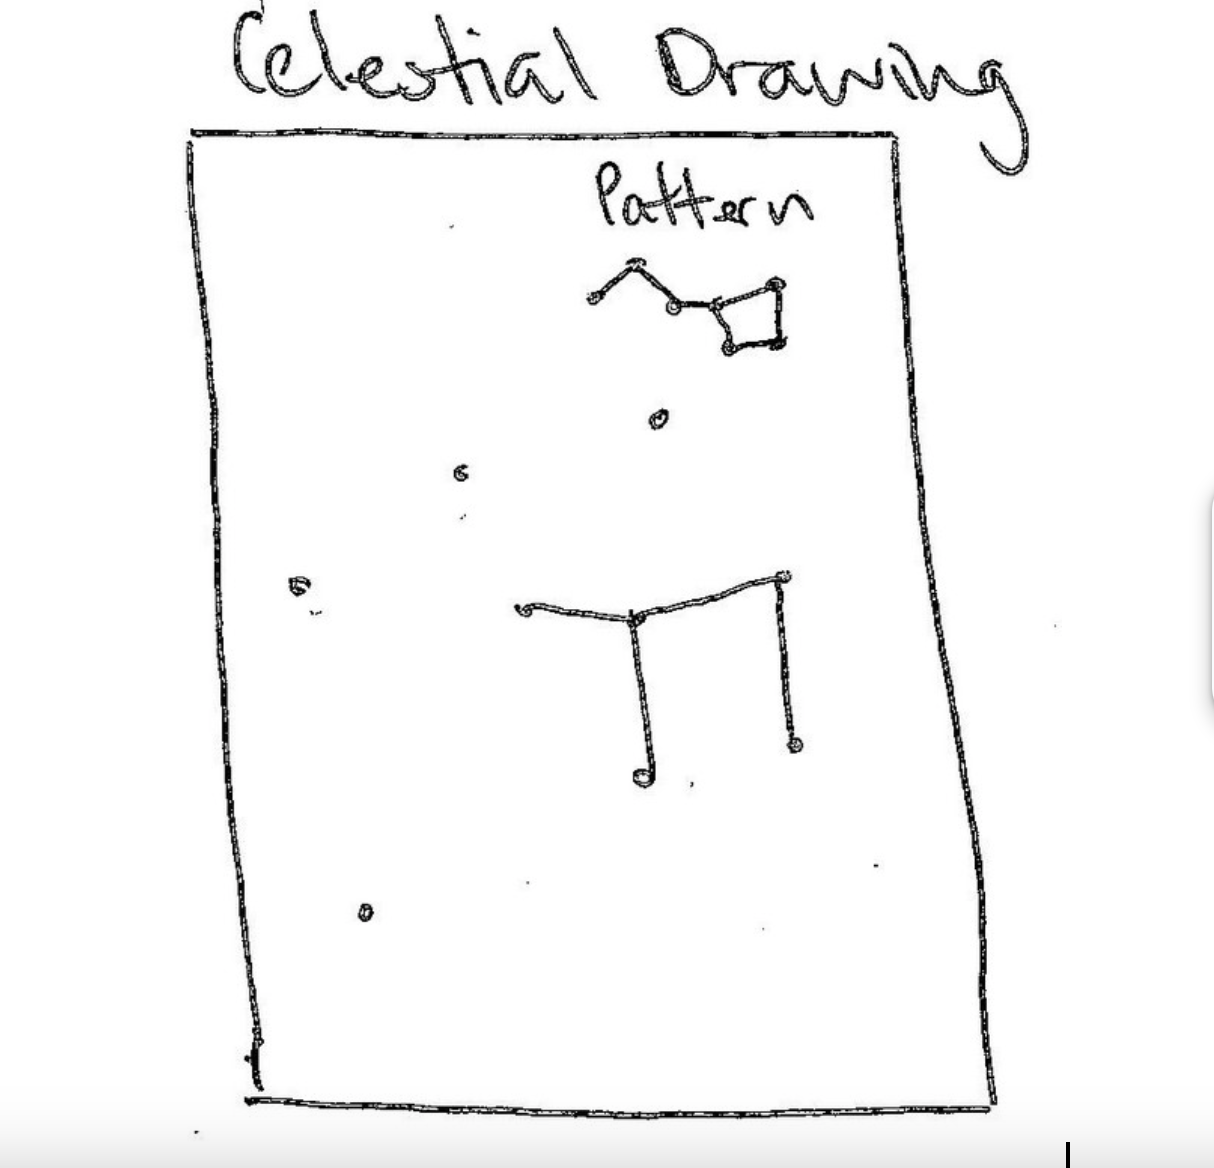 Celestial Drawing
Pattern